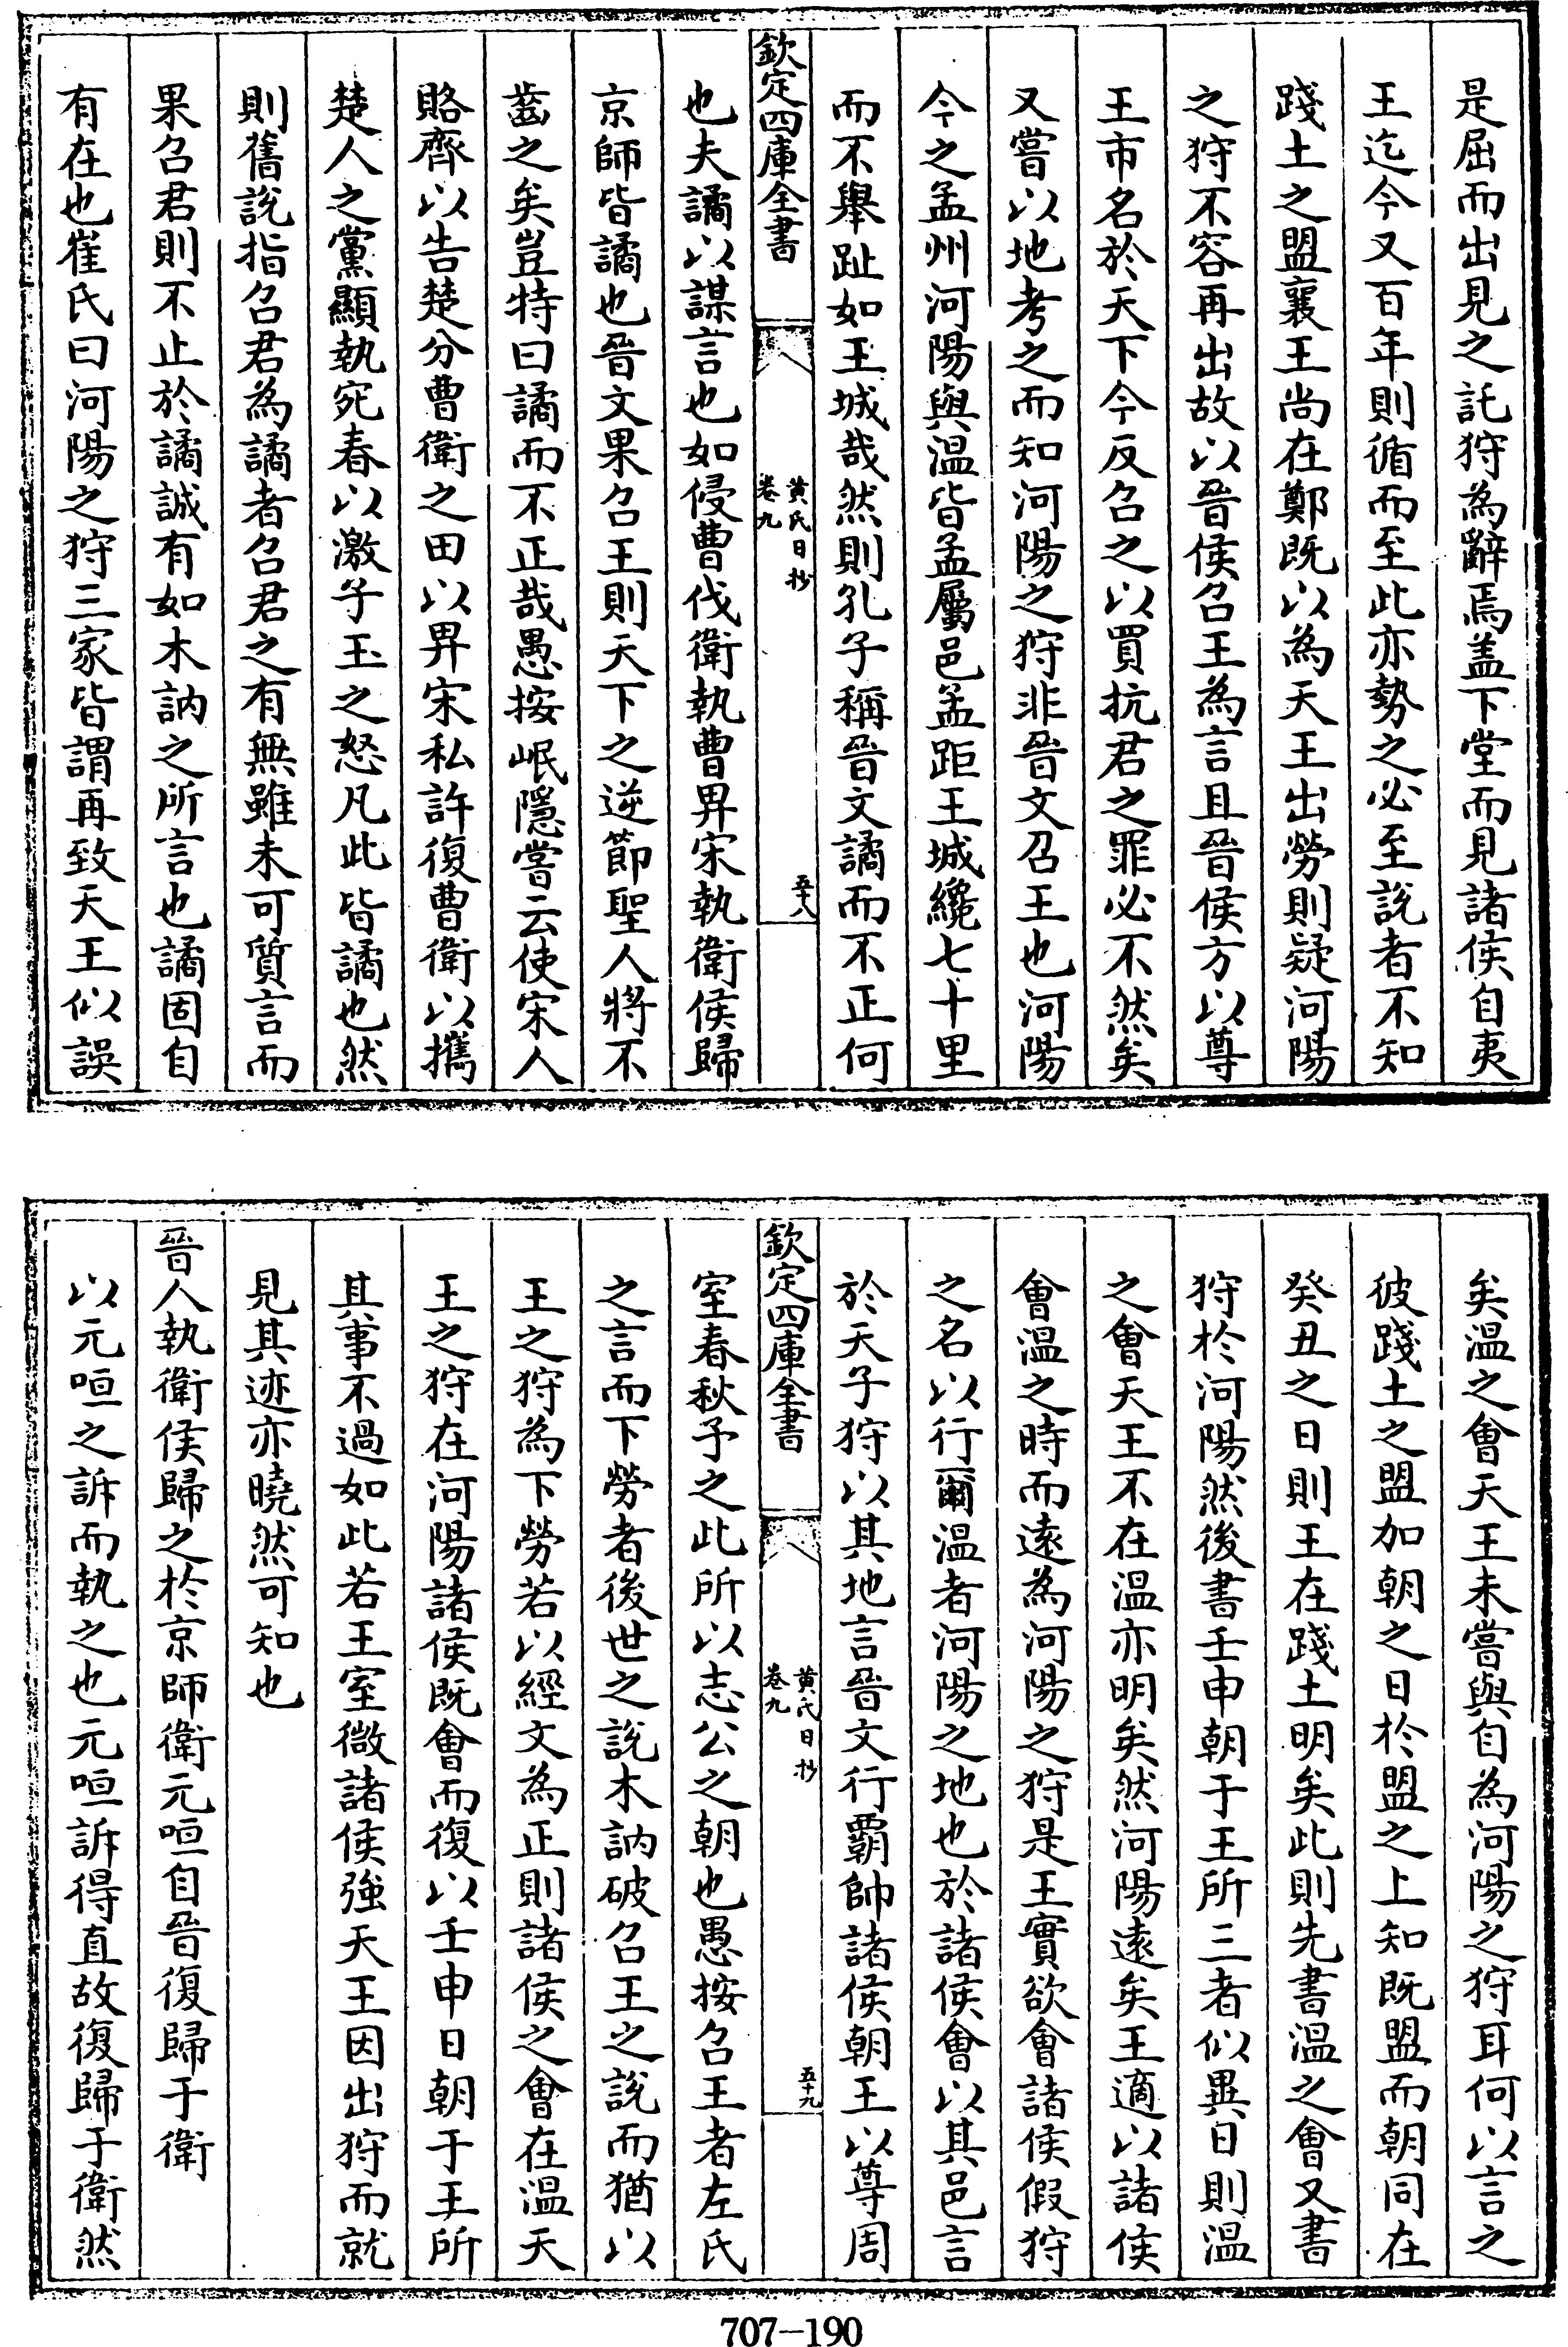 是屈而出見之託狩為辭焉盖下堂而見諸侯自夷
王迄今又百年則循而至此亦勢之必至說者不知
踐土之盟襄王尚在鄭既以為天王出勞則疑河陽
之狩不容再出故以晉侯召王為言且晉侯方以尊
王市名於天下今反召之以買抗君之罪必不然矣
又嘗以地考之而知河陽之狩非晉文召王也河陽
今之孟州河陽與温皆孟屬邑孟距王城纔七十里
而不舉趾如王城哉然則孔子稱晉文譎而不正何
欽定四庫全書
黄氏日抄
卷九
五十八
也夫譎以謀言也如侵曹伐衛執曹畀宋執衛侯歸
京師皆譎也晉文果召王則天下之逆節聖人將不
齒之矣豈特曰譎而不正哉愚按岷隱嘗云使宋人
賂齊以告楚分曹衛之田以畀宋私許復曹衛以攜
楚人之黨顯執宛春以激子玉之怒凡此皆譎也然
則舊說指召君為譎者召君之有無雖未可質言而
果召君則不止於譎誠有如木訥之所言也譎固自
有在也崔氏曰河陽之狩三家皆謂再致天王似誤
矣温之會天王未嘗與自為河陽之狩耳何以言之
彼踐土之盟加朝之日於盟之上知既盟而朝同在
癸丑之日則王在踐土明矣此則先書温之會又書
狩於河陽然後書壬申朝于王所三者似異日則温
之會天王不在温亦明矣然河陽遠矣王適以諸侯
會温之時而遠為河陽之狩是王實欲會諸侯假狩
之名以行爾温者河陽之地也於諸侯會以其邑言
於天子狩以其地言晉文行覇帥諸侯朝王以尊周
欽定四庫全書
黄氏日抄
卷九
五十九
室春秋予之此所以志公之朝也愚按召王者左氏
之言而下勞者後世之說木訥破召王之說而猶以
王之狩為下勞若以經文為正則諸侯之會在温天
王之狩在河陽諸侯既會而復以壬申日朝于王所
其事不過如此若王室微諸侯強天王因出狩而就
見其迹亦曉然可知也
晉人執衛侯歸之於京師衛元咺自晉復歸于衛
以元咺之訴而執之也元咺訴得直故復歸于衛然
707-190